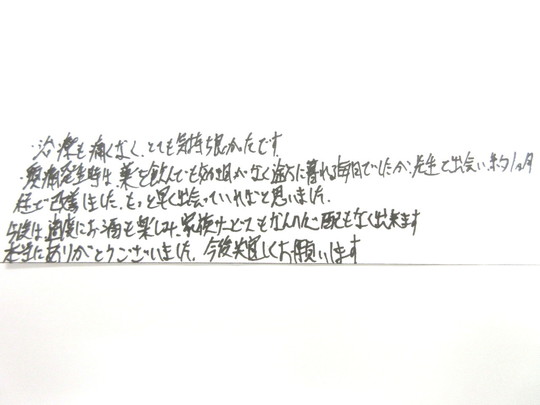 ・治療も痛くなく、とても気持ち良かったです。
・腰痛発生時は薬を飲んでも効果がなく途方に暮れる毎日でしたが、先生と出会い約1ヶ月
程で改善しました。もっと早く出会っていればと思いました。
今後は適度にお酒も楽しみ、家族サービスもなんの心配もなく出来ます
本当にありがとうございました。今後共宜しくお願いします